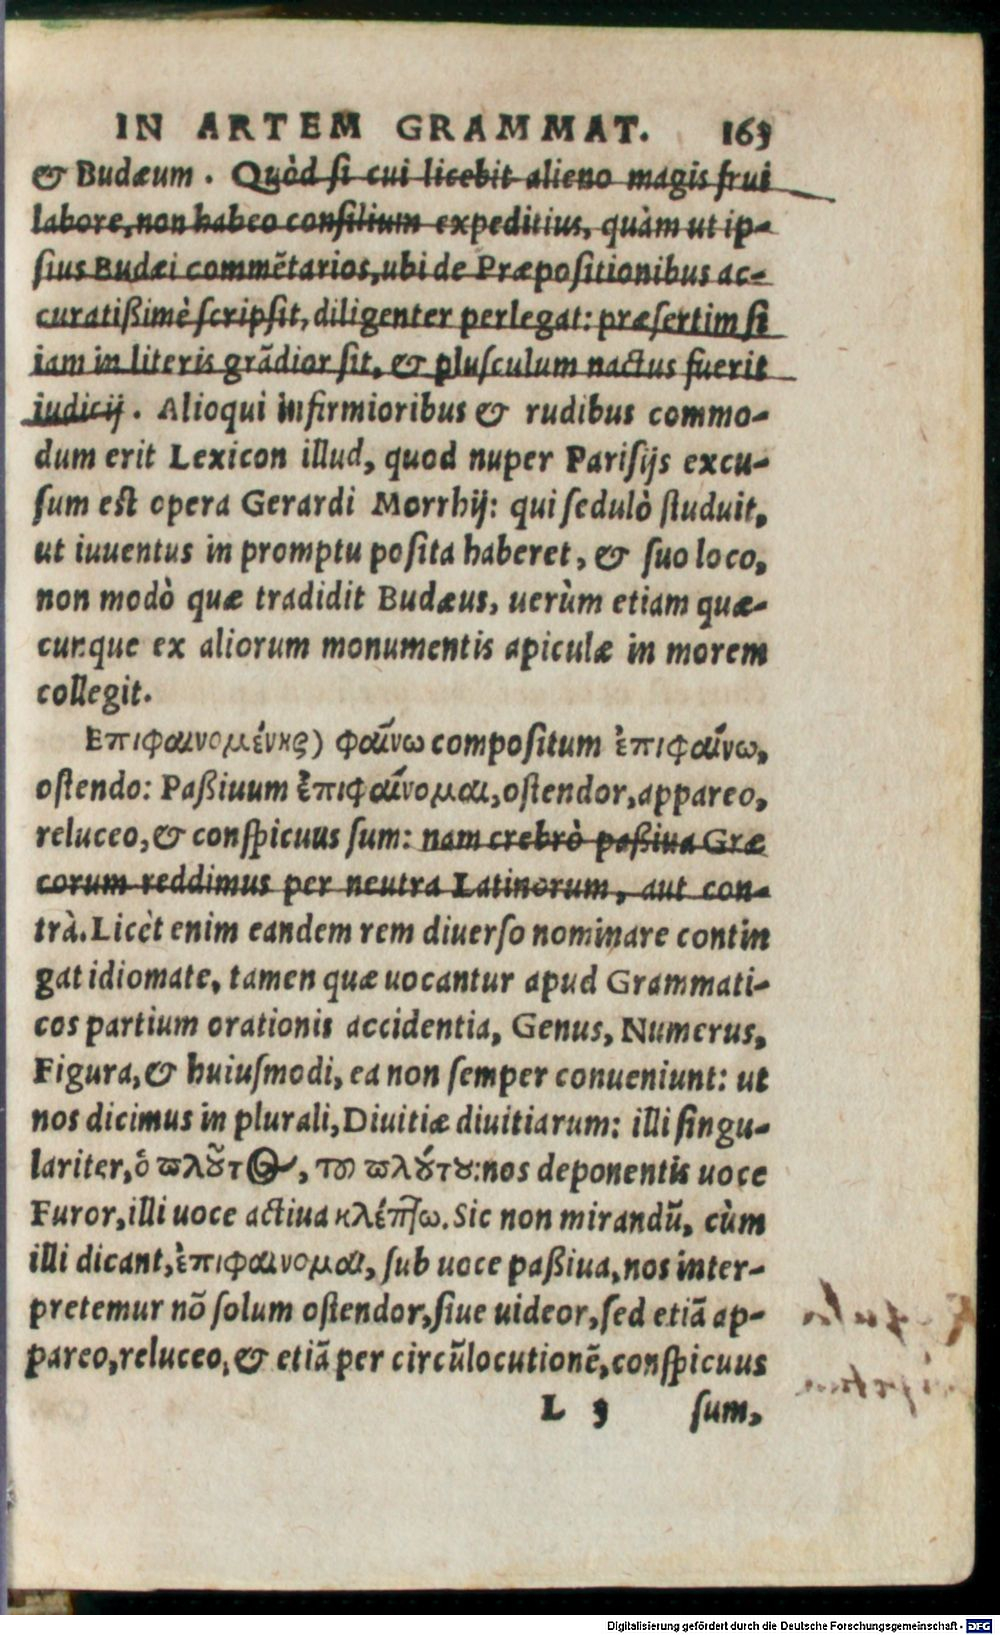 IN ARTEM GRAMMAT. 165
& Budæum. Quòd si cui licebit alieno magis frui
labore, non habeo consilium expeditius, quàm ut ip-
sius Budæi commẽtarios, ubi de Præpositionibus ac-
curatißimè scripsit, diligenter perlegat: præsertim si
iam in literis grãdior sit, & plusculum nactus fuerit
iudicij. Alioqui infirmioribus & rudibus commo-
dum erit Lexicon illud, quod nuper Parisijs excu-
sum est opera Gerardi Morrhij: qui sedulò studuit,
ut iuuentus in promptu posita haberet, & suo loco,
non modò quæ tradidit Budæus, uerùm etiam quæ-
cunque ex aliorum monumentis apiculæ in morem
collegit.
Επιφαινομένης) φαίνω compositum ἐπιφαίνω,
ostendo: Paßiuum ἐπιφαίνομαι, ostendor, appareo,
reluceo, & conspicuus sum: nam crebrò paßiua Græ
corum reddimus per neutra Latinorum, aut con-
trà. Licèt enim eandem rem diuerso nominare contin
gat idiomate, tamen quæ uocantur apud Grammati-
cos partium orationis accidentia, Genus, Numerus,
Figura, & huiusmodi, ea non semper conueniunt: ut
nos dicimus in plurali, Diuitiæ diuitiarum: illi singu-
lariter, ὁ πλοῦτος, τοῦ πλούτου: nos deponentis uoce
Furor, illi uoce actiua κλέπτω. Sic non mirandũ, cùm
illi dicant, ἐπιφαινομαι, sub uoce paßiua, nos inter-
pretemur nõ solum ostendor, siue uideor, sed etiã ap-
pareo, reluceo, & etiã per circũlocutionẽ, conspicuus
L 5 sum,
Digitalisierung gefördert durch die Deutsche Forschungsgemeinschaft - DFG